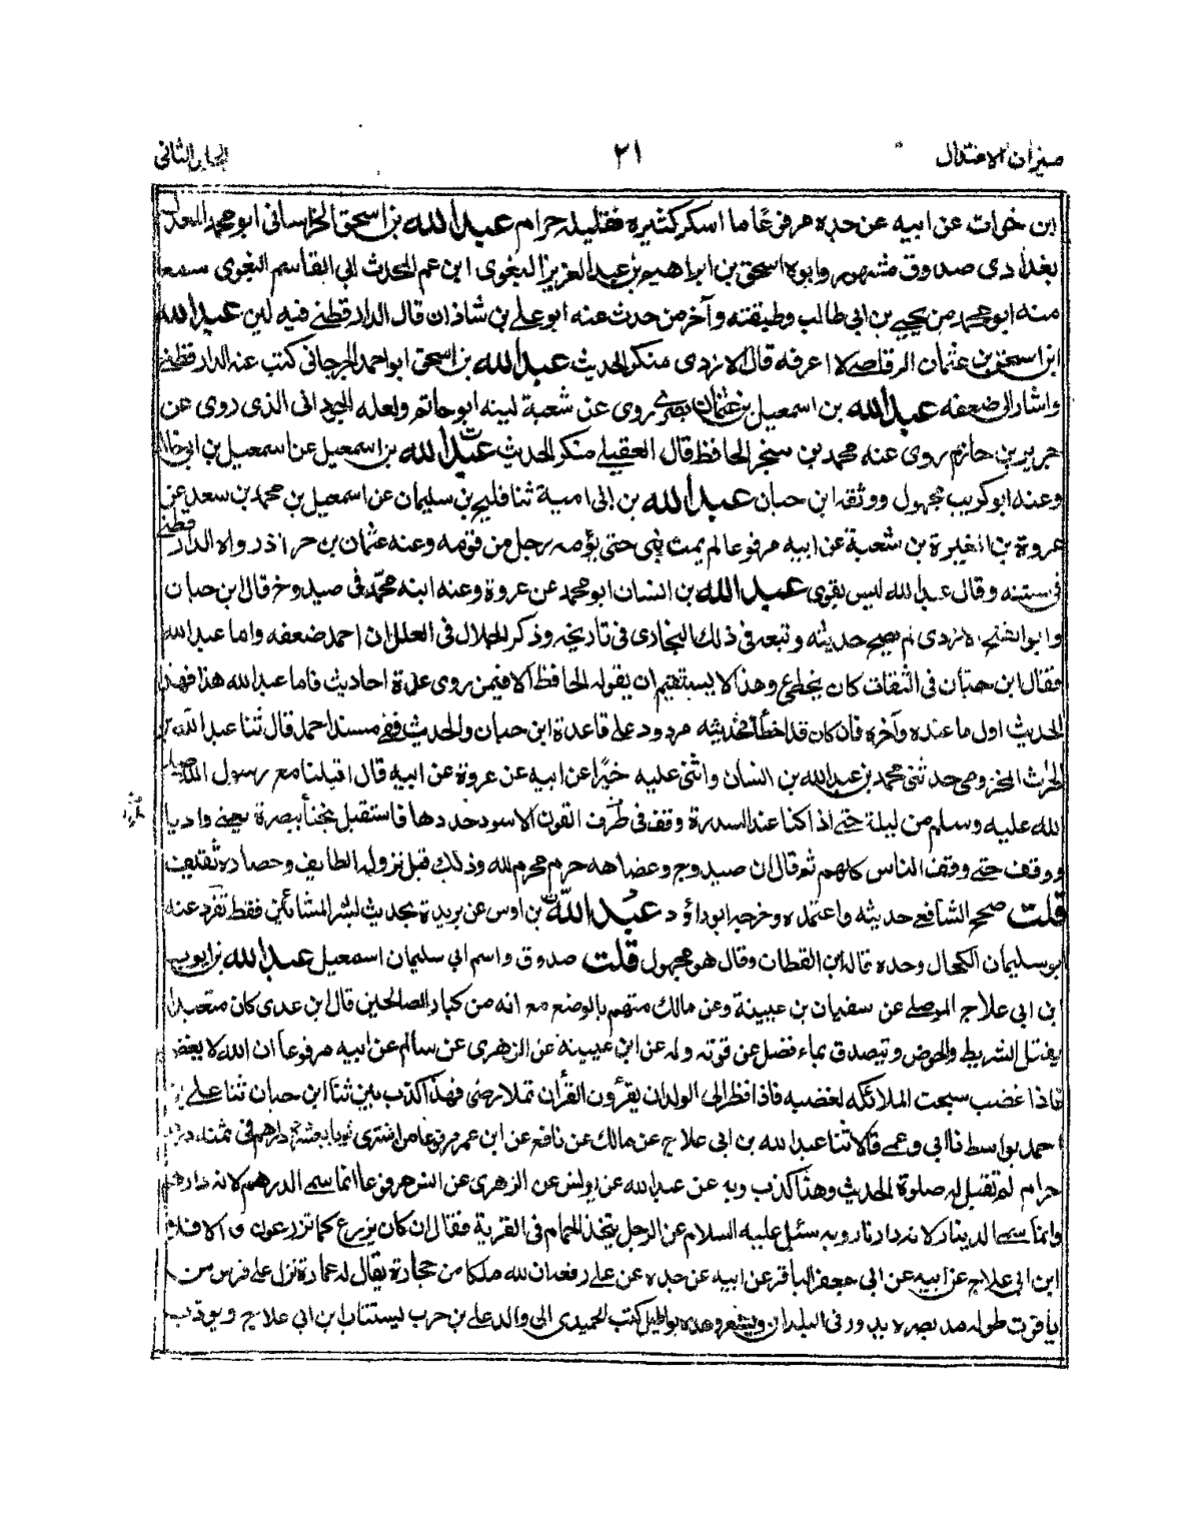 ميزان الاعتدال ٢١ الجلد الثانى
ابن خوات عن ابيه عن جده مرفوعا ما اسكر كثيره فقليله حرام عبد الله بن اسحق الخراسانى ابو محمد المعدل
بغدادى صدوق مشهور وابوه اسحق بن ابراهيم بن عبد العزيز البغوى ابن عم المحدث ابى القاسم البغوى سمع
منه ابو محمد من يحيى بن ابى طالب وطبقته وآخر من حدث عنه ابو على بن شاذان قال الدارقطنى فيه لين عبد الله
ابن اسحق بن عثمان الوقاصى لا اعرفه قال الازدى منكر الحديث عبد الله بن اسحق ابو احمد الجرجانى كتب عنه الدارقطنى
واشار الى ضعفه عبد الله بن اسمعيل بن عثمان بصرى روى عن شعبة لينه ابو حاتم ولعله الجودانى الذى روى عن
جرير بن حازم روى عنه محمد بن سنجر الحافظ قال العقيلى منكر الحديث عبد الله بن اسمعيل عن اسمعيل بن ابى خالد
وعنه ابو كريب مجهول ووثقه ابن حبان عبد الله بن ابى امية ثنا فليح بن سليمان عن اسمعيل بن محمد بن سعد عن
عروة بن المغيرة بن شعبة عن ابيه مرفوعا لم يمت نبى حتى يؤمه رجل من قومه وعنه عثمان بن خرزاذ رواه الدارقطنى
فى سننه وقال عبد الله ليس بقوى عبد الله بن انسان ابو محمد عن عروة وعنه ابنه محمد فى صيد وج قال ابن حبان
وابو الفتح الازدى لم يصح حديثه وتبعه فى ذلك البخارى فى تاريخه وذكر الخلال فى العلل ان احمد ضعفه واما عبد الله
فقال ابن حبان فى الثقات كان يخطئ وهذا لا يستقيم ان يقوله الحافظ الا فيمن روى عدة احاديث فاما عبد الله هذا فهذا
الحديث اول ما عنده وآخره فان كان قد اخطأ فحديثه مردود على قاعدة ابن حبان والحديث ففى مسند احمد قال ثنا عبد الله بن
الحرث المخزومى حدثنى محمد بن عبد الله بن انسان واثنى عليه خيرًا عن ابيه عن عروة عن ابيه قال اقبلنا مع رسول الله صلى
الله عليه وسلم من ليلة حتى اذا كنا عند السدرة وقف فى طرف القرن الاسود حذوها فاستقبل نخبًا ببصره يعنى واديا
ووقف حتى وقف الناس كلهم ثم قال ان صيد وج وعضاهه حرم محرم لله وذلك قبل نزوله الطايف وحصاره ثقيف
قلت صحح الشافعى حديثه واعتمده وخرجه ابو داؤد عبد الله بن اوس عن بريدة بحديث بشر المشائين فقط تفرد عنه
بو سليمان الكحال وحده قاله ابن القطان وقال هو مجهول قلت صدوق واسم ابى سليمان اسمعيل عبد الله بن ايوب
ابن ابى علاج الموصلى عن سفيان بن عيينة وعن مالك متهم بالوضع مع انه من كبار الصالحين قال ابن عدى كان متعبدا
يفتل الشريط والخوص ويتصدق بماء فضل عن قوته وله عن ابن عيينه عن الزهرى عن سالم عن ابيه مرفوعا ان الله لا يغضب
فاذا غضب سبحت الملائكه لغضبه فاذا نظر الى الولدان يقرؤن القرأن تملا رضى فهذا كذب بين ثنا ابن حبان ثنا على بن
احمد بواسط نا ابى وعمى قالا ثنا عبد الله بن ابى علاج عن مالك عن نافع عن ابن عمر مرفوعا من اشترى ثوبا بعشرة دراهم فى ثمنه درهم
حرام لم تقبل له صلوة الحديث وهذا كذب وبه عن عبد الله عن يونس عن الزهرى عن انس مرفوعا انما سمى الدرهم لانه دارهم
وانما سمى الدينار لانه دار نار وبه سئل عليه السلام عن الرجل يتخذ الحمام فى القرية فقال ان كان يزرع كما تزرعون والا فلا
ابن ابى علاج عن ابيه عن ابى جعفر الباقر عن ابيه عن جده عن على رفعه ان لله ملكا من حجارة يقال له عمارة نزل على فرس من
ياقوت طوله مد بصره يدور فى البلدان ويسعر وهذه بواطيل كتب الحميدى الى والد على بن حرب ليستتاب ابن ابى علاج ويؤدب